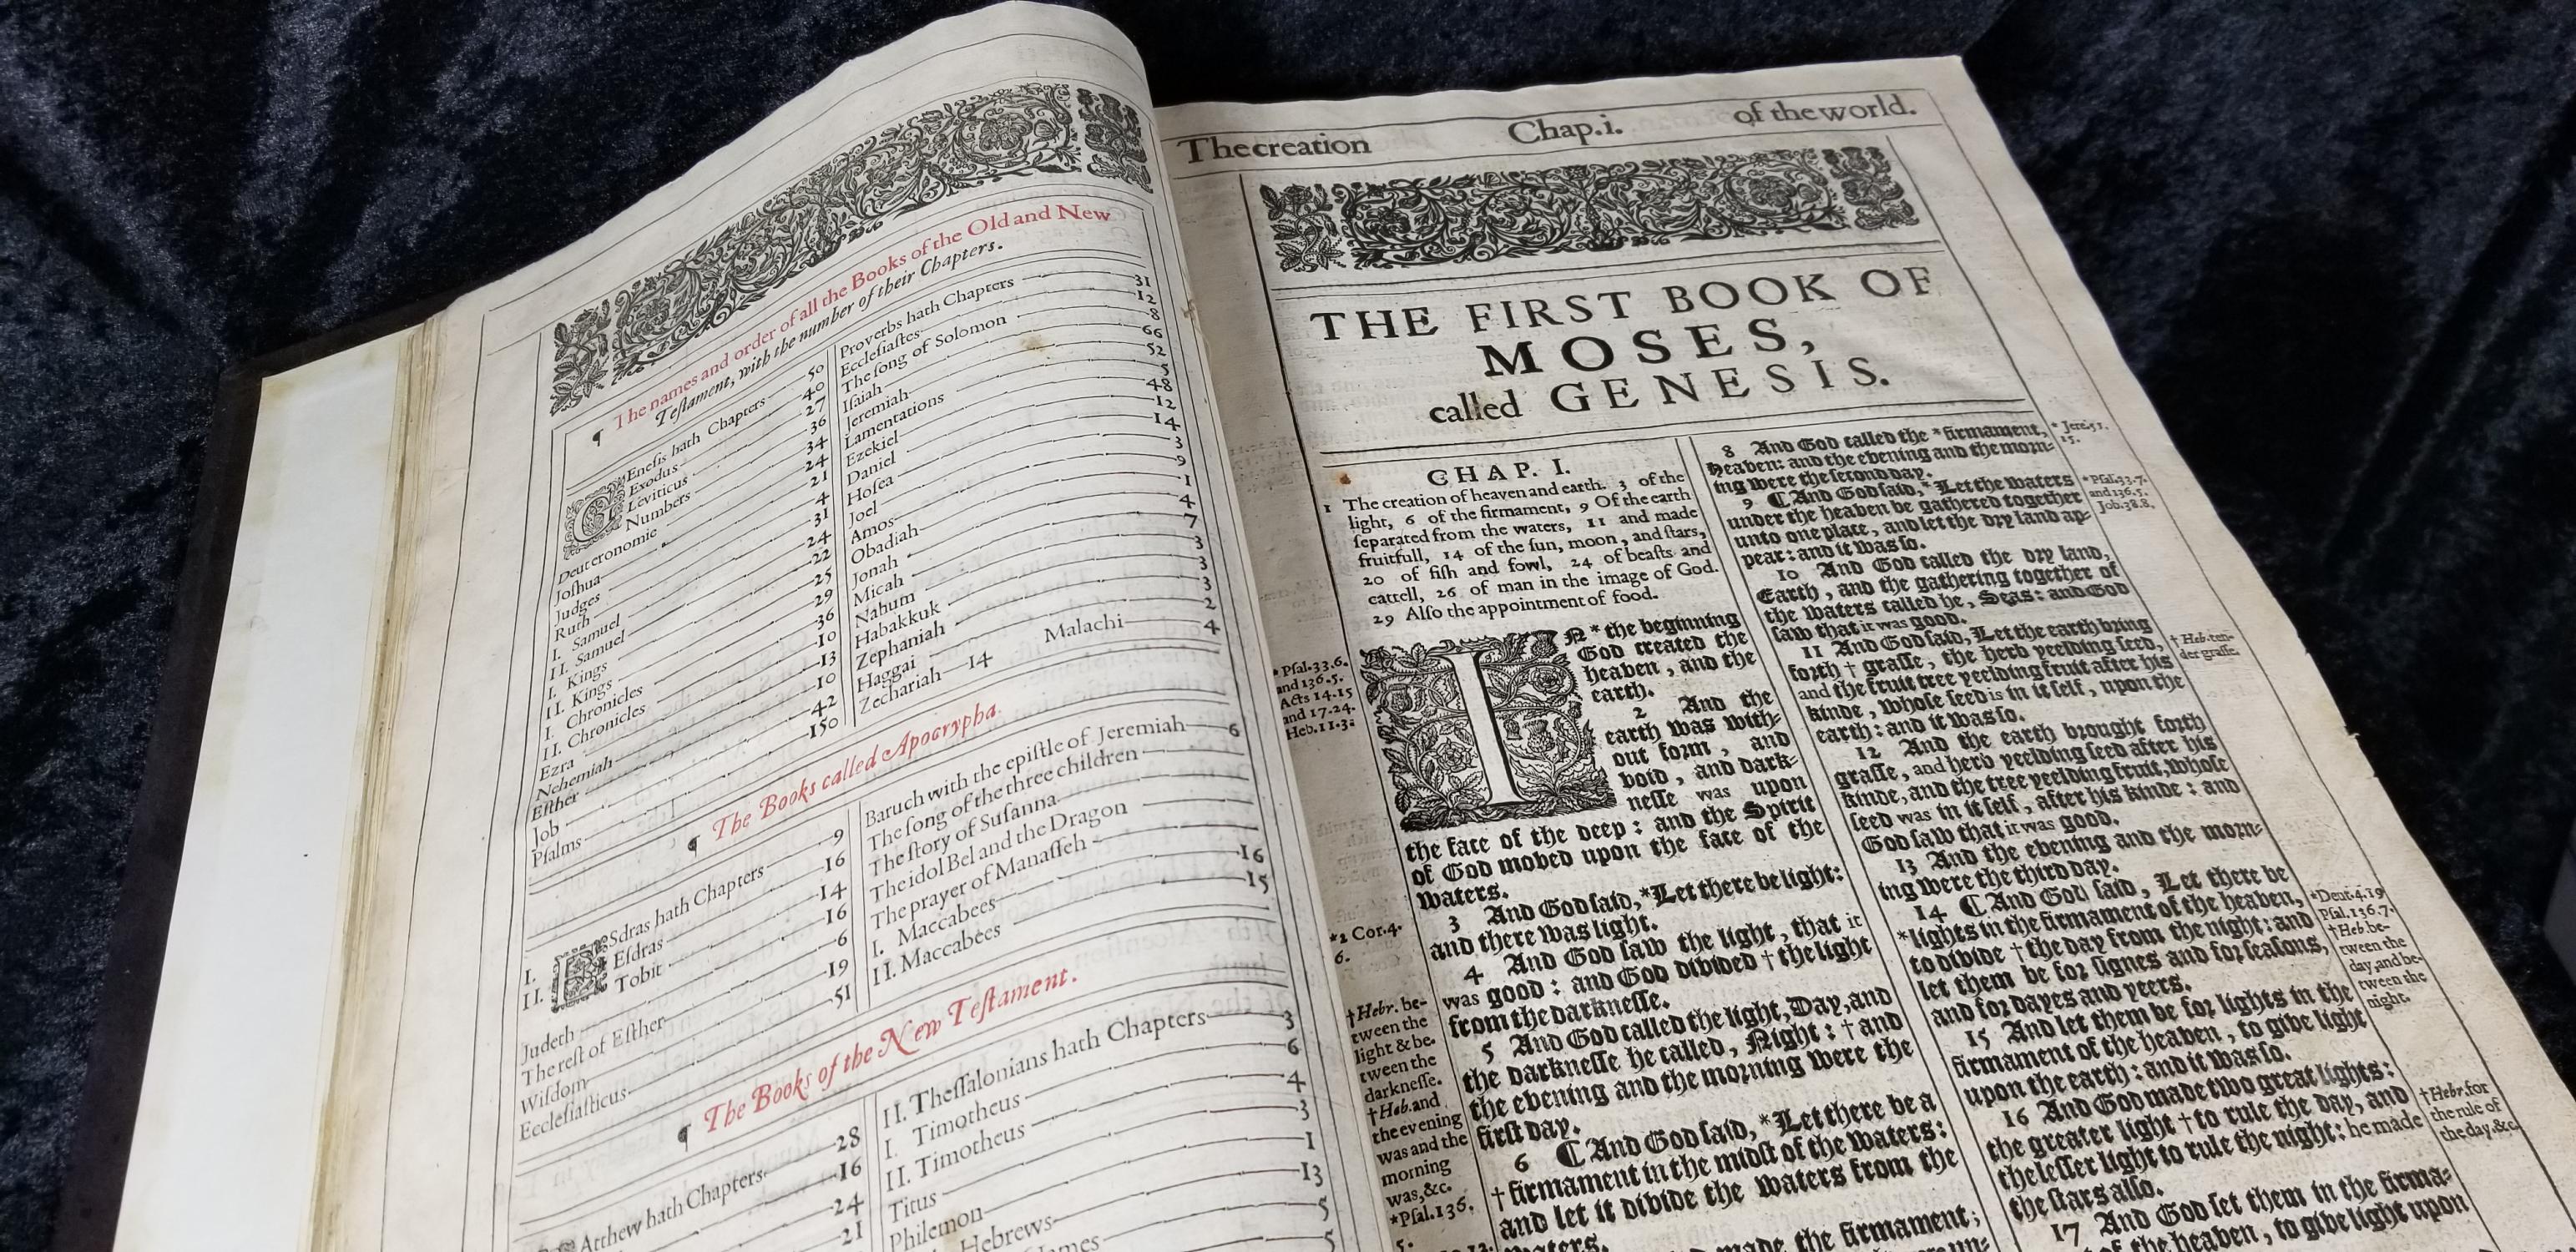 ¶ The names and order of all the Books of the Old and New
Teſtament, with the number of their Chapters.
GEneſis hath Chapters 50
Exodus 40
Leviticus 27
Numbers 36
Deuteronomie 34
Joſhua 24
Judges 21
Ruth 4
I. Samuel 31
II. Samuel 24
I. Kings 22
II. Kings 25
I. Chronicles 29
II. Chronicles 36
Ezra 10
Nehemiah 13
Eſther 10
Job 42
Pſalms 150
Proverbs hath Chapters 31
Eccleſiaſtes 12
The ſong of Solomon 8
Iſaiah 66
Jeremiah 52
Lamentations 5
Ezekiel 48
Daniel 12
Hoſea 14
Joel 3
Amos 9
Obadiah 1
Jonah 4
Micah 7
Nahum 3
Habakkuk 3
Zephaniah 3
Haggai 2
Zechariah 14 Malachi 4
¶ The Books called Apocrypha.
I. ESdras hath Chapters 9
II. Eſdras 16
Tobit 14
Judeth 16
The reſt of Eſther 6
Wiſdom 19
Eccleſiaſticus 51
Baruch with the epiſtle of Jeremiah 6
The ſong of the three children
The ſtory of Suſanna
The idol Bel and the Dragon
The prayer of Manaſſeh
I. Maccabees 16
II. Maccabees 15
¶ The Books of the New Teſtament.
Atthew hath Chapters 28
16
24
21
II. Theſſalonians hath Chapters 3
I. Timotheus 6
II. Timotheus 4
Titus 3
Philemon 1
Hebrews 13
5
5
The creation Chap. i. of the world.
THE FIRST BOOK OF
MOSES,
called GENESIS.
CHAP. I.
1 The creation of heaven and earth. 3 of the
light, 6 of the firmament, 9 Of the earth
ſeparated from the waters, 11 and made
fruitfull, 14 of the ſun, moon, and ſtars,
20 of fiſh and fowl, 24 of beaſts and
cattell, 26 of man in the image of God.
29 Alſo the appointment of food.
IN * the beginning
God created the
heaven, and the
earth.
2 And the
earth was with-
out form, and
void, and dark-
neſſe was upon
the face of the deep: and the Spirit
of God moved upon the face of the
waters.
3 And God ſaid, * Let there be light:
and there was light.
4 And God ſaw the light, that it
was good: and God divided † the light
from the darkneſſe.
5 And God called the light, Day, and
the darkneſſe he called, Night: † and
the evening and the morning were the
firſt day.
6 ¶ And God ſaid, * Let there be a
† firmament in the midſt of the waters:
and let it divide the waters from the
waters.
made the firmament;
* Pſal. 33. 6.
and 136. 5.
Acts 14. 15
and 17. 24.
Heb. 11. 3.
* 2 Cor. 4.
6.
† Hebr. be-
tween the
light & be-
tween the
darkneſſe.
† Heb. and
the evening
was and the
morning
was, &c.
* Pſal. 136.
5.
8 And God called the * firmament,
Heaven: and the evening and the morn-
ing were the ſecond day.
9 ¶ And God ſaid, * Let the waters
under the heaven be gathered together
unto one place, and let the dry land ap-
pear: and it was ſo.
10 And God called the dry land,
Earth, and the gathering together of
the waters called he, Seas: and God
ſaw that it was good.
11 And God ſaid, Let the earth bring
forth † graſſe, the herb yeelding ſeed,
and the fruit tree yeelding fruit after his
kinde, whoſe ſeed is in it ſelf, upon the
earth: and it was ſo.
12 And the earth brought forth
graſſe, and herb yeelding ſeed after his
kinde, and the tree yeelding fruit, whoſe
ſeed was in it ſelf, after his kinde: and
God ſaw that it was good.
13 And the evening and the morn-
ing were the third day.
14 ¶ And God ſaid, Let there be
* lights in the firmament of the heaven,
to divide † the day from the night: and
let them be for ſignes and for ſeaſons,
and for dayes and yeers.
15 And let them be for lights in the
firmament of the heaven, to give light
upon the earth: and it was ſo.
16 And God made two great lights:
the greater light † to rule the day, and
the leſſer light to rule the night: he made
the ſtars alſo.
17 And God ſet them in the firma-
of the heaven, to give light upon
* Jere. 51.
15.
* Pſal. 33. 7.
and 136. 5.
Job. 38. 8.
† Heb. ten-
der graſſe.
* Deut. 4. 19
Pſal. 136. 7.
† Heb. be-
tween the
day, and be-
tween the
night.
† Hebr. for
the rule of
the day, &c.